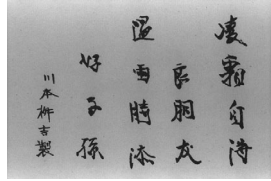 凌霜自得
良朋友
過雨時添
好子孫
川本桝吉製